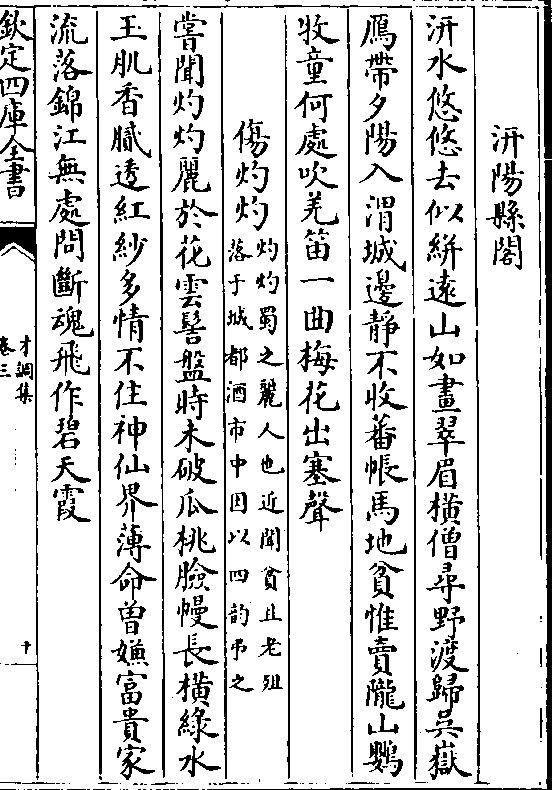 汧陽縣閣
汧水悠悠去似絣遠山如畫翠眉橫僧尋野渡歸吳嶽
鴈帶夕陽入渭城邊靜不收蕃帳馬地貧惟賣隴山鸚
牧童何處吹羌笛一曲梅花出塞聲
傷灼灼
灼灼蜀之麗人也近聞貧且老殂
落于成都酒市中因以四韵弔之
嘗聞灼灼麗於花雲髻盤時未破瓜桃臉幔長橫綠水
玉肌香膩透紅紗多情不住神仙界薄命曽嫌富貴家
流落錦江無處問斷魂飛作碧天霞
欽定四庫全書
才調集
卷三
十